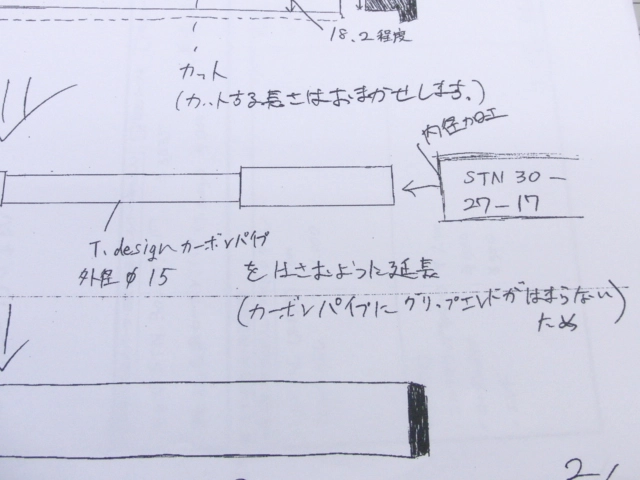 18.2程度
カット
(カットする長さはおまかせします。)
内径加工
STN 30-
27-17
T.designカーボンパイプ
外径φ15
をはさむように延長
(カーボンパイプにグリップエンドがはまらない
ため)